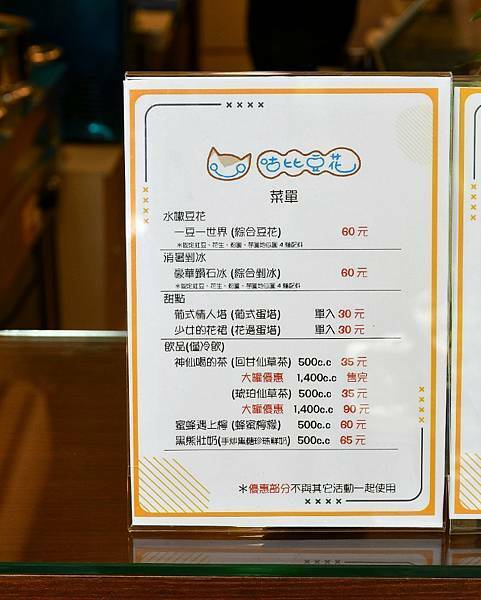 咕比豆花
菜單
水嫩豆花
一豆一世界 (綜合豆花) 60 元
＊固定紅豆、花生、粉圓、芋圓地瓜圓 4 種配料
消暑剉冰
豪華鑽石冰 (綜合剉冰) 60 元
＊固定紅豆、花生、粉圓、芋圓地瓜圓 4 種配料
甜點
葡式情人塔 (葡式蛋塔) 單入 30 元
少女的花裙 (花邊蛋塔) 單入 30 元
飲品(僅冷飲)
神仙喝的茶 (回甘仙草茶) 500c.c 35 元
大罐優惠 1,400c.c 售完
(琥珀仙草茶) 500c.c 35 元
大罐優惠 1,400c.c 90 元
蜜蜂遇上檸 (蜂蜜檸檬) 500c.c 60 元
黑熊壯奶(手炒黑糖珍珠鮮奶) 500c.c 65 元
＊優惠部分不與其它活動一起使用